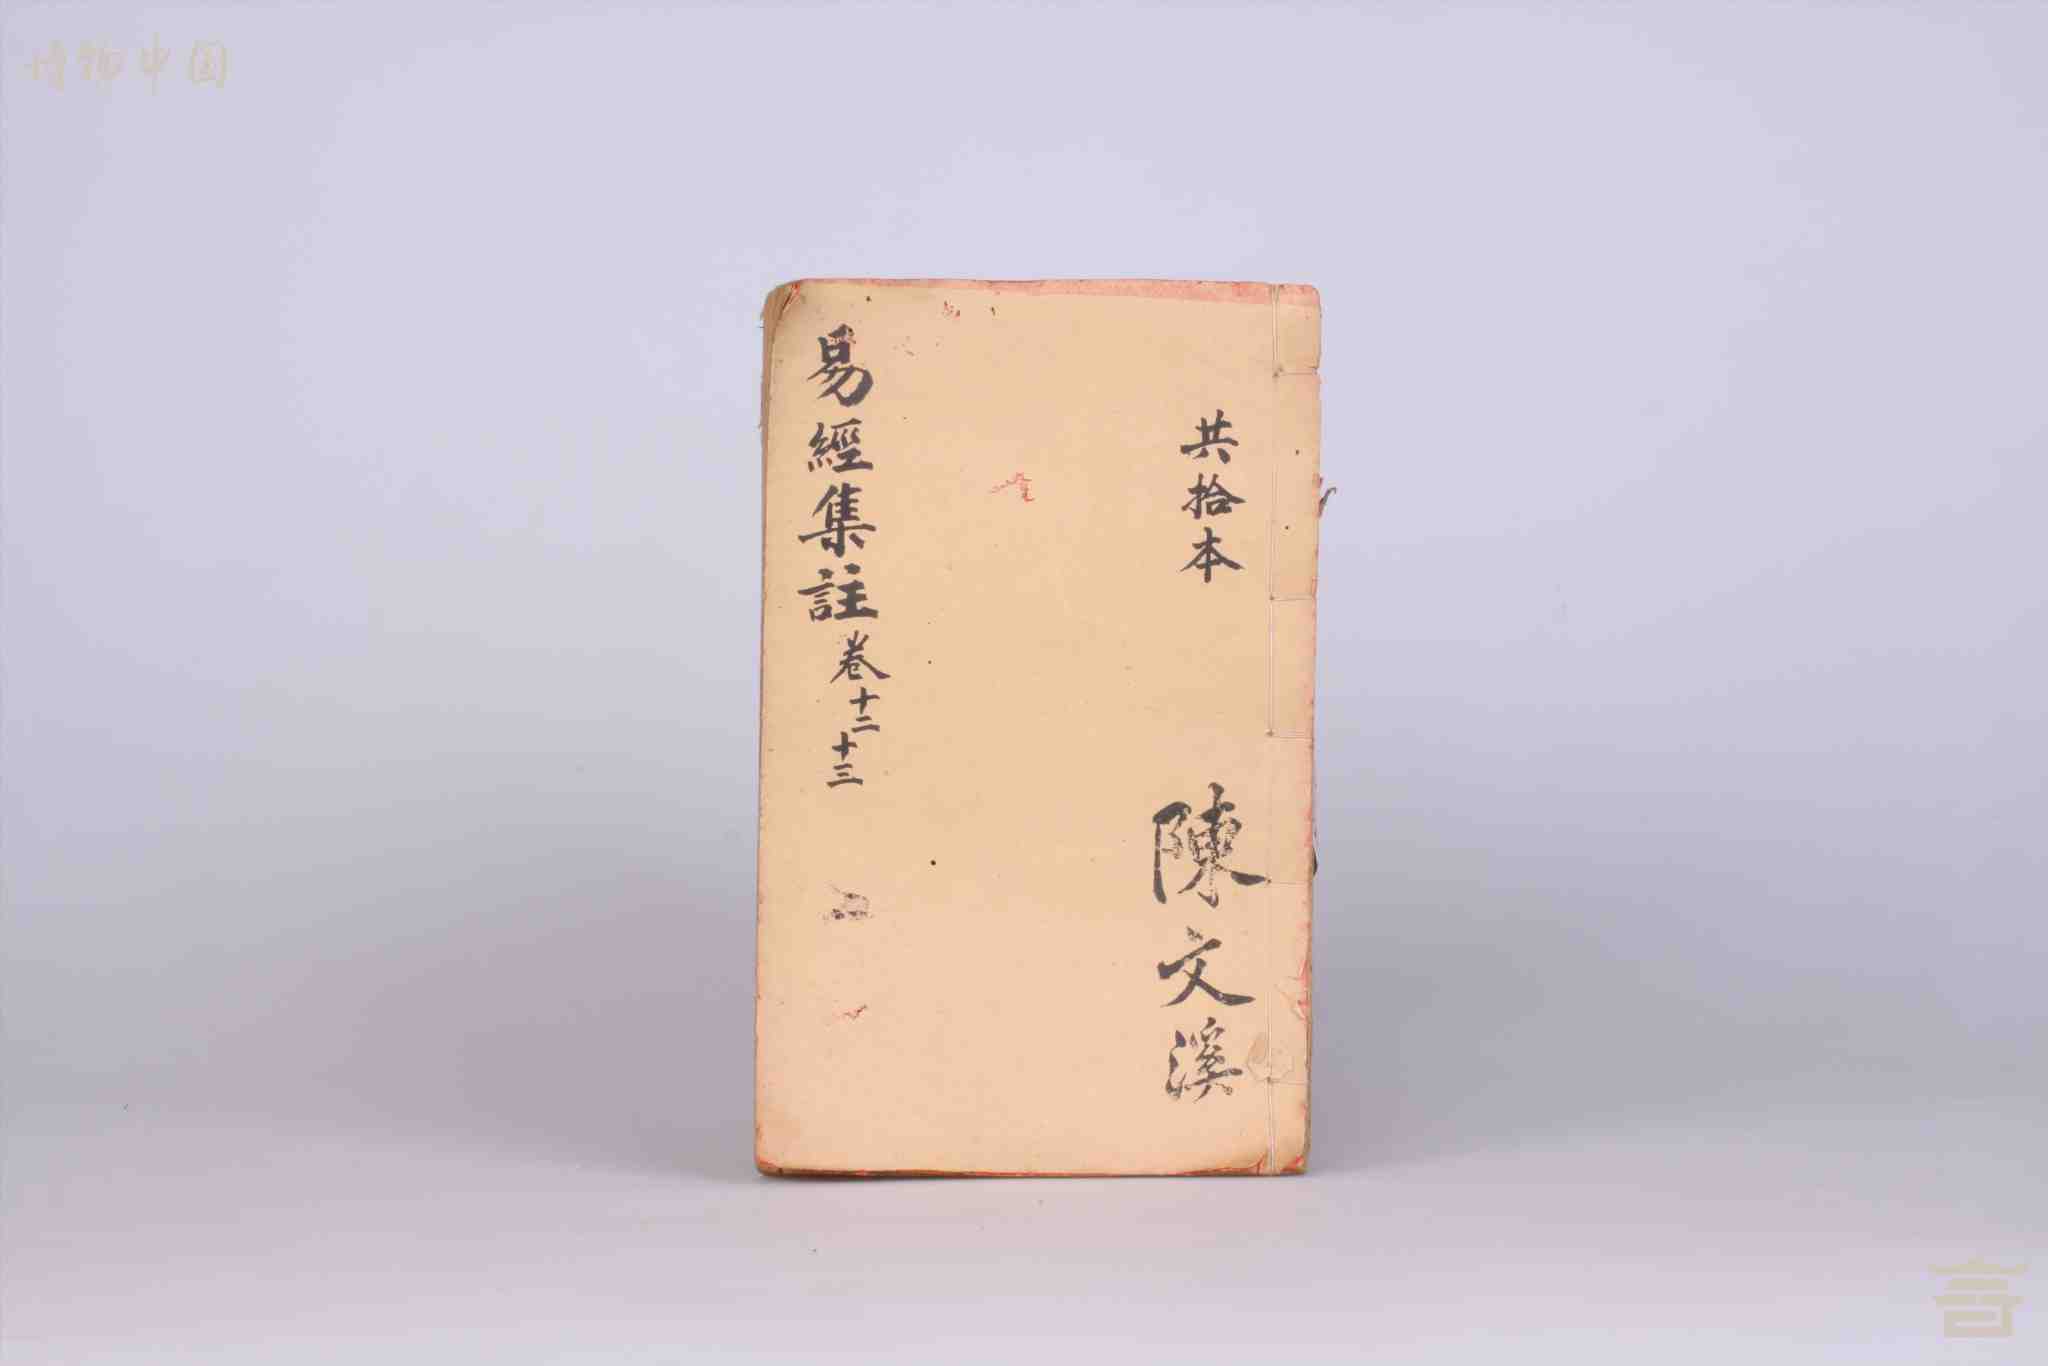 博物中国
共拾本
陳文溪
易經集註卷十二
十三